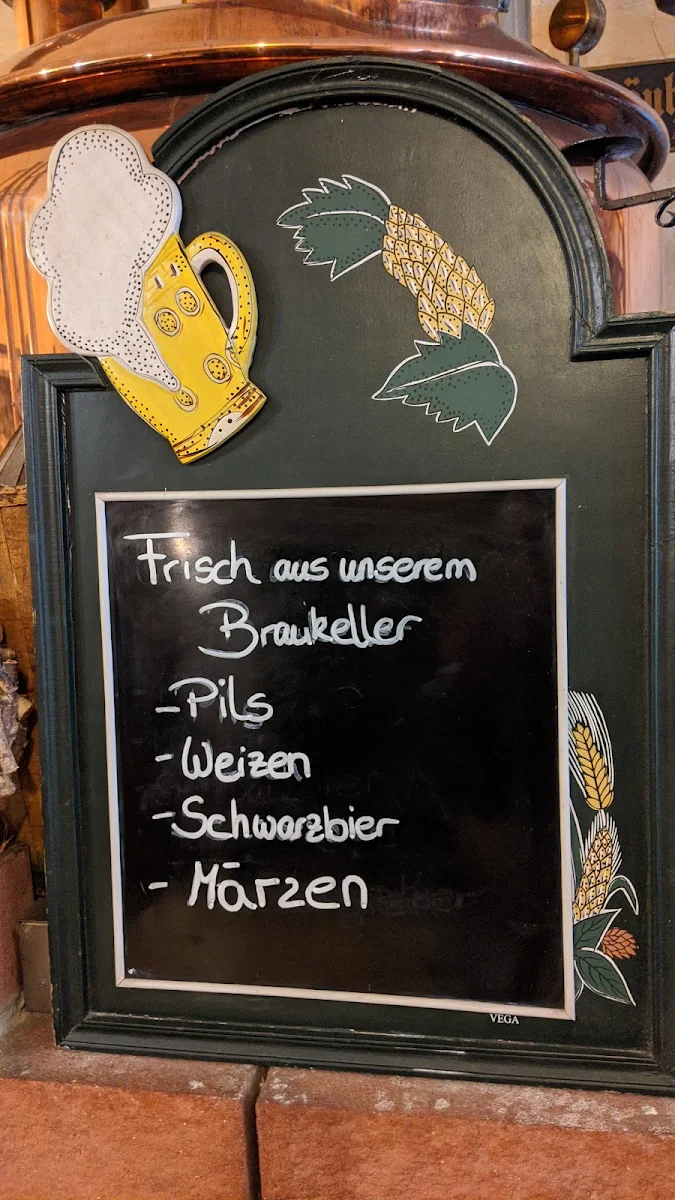 Frisch aus unserem
Braukeller
- Pils
- Weizen
- Schwarzbier
- Märzen
VEGA